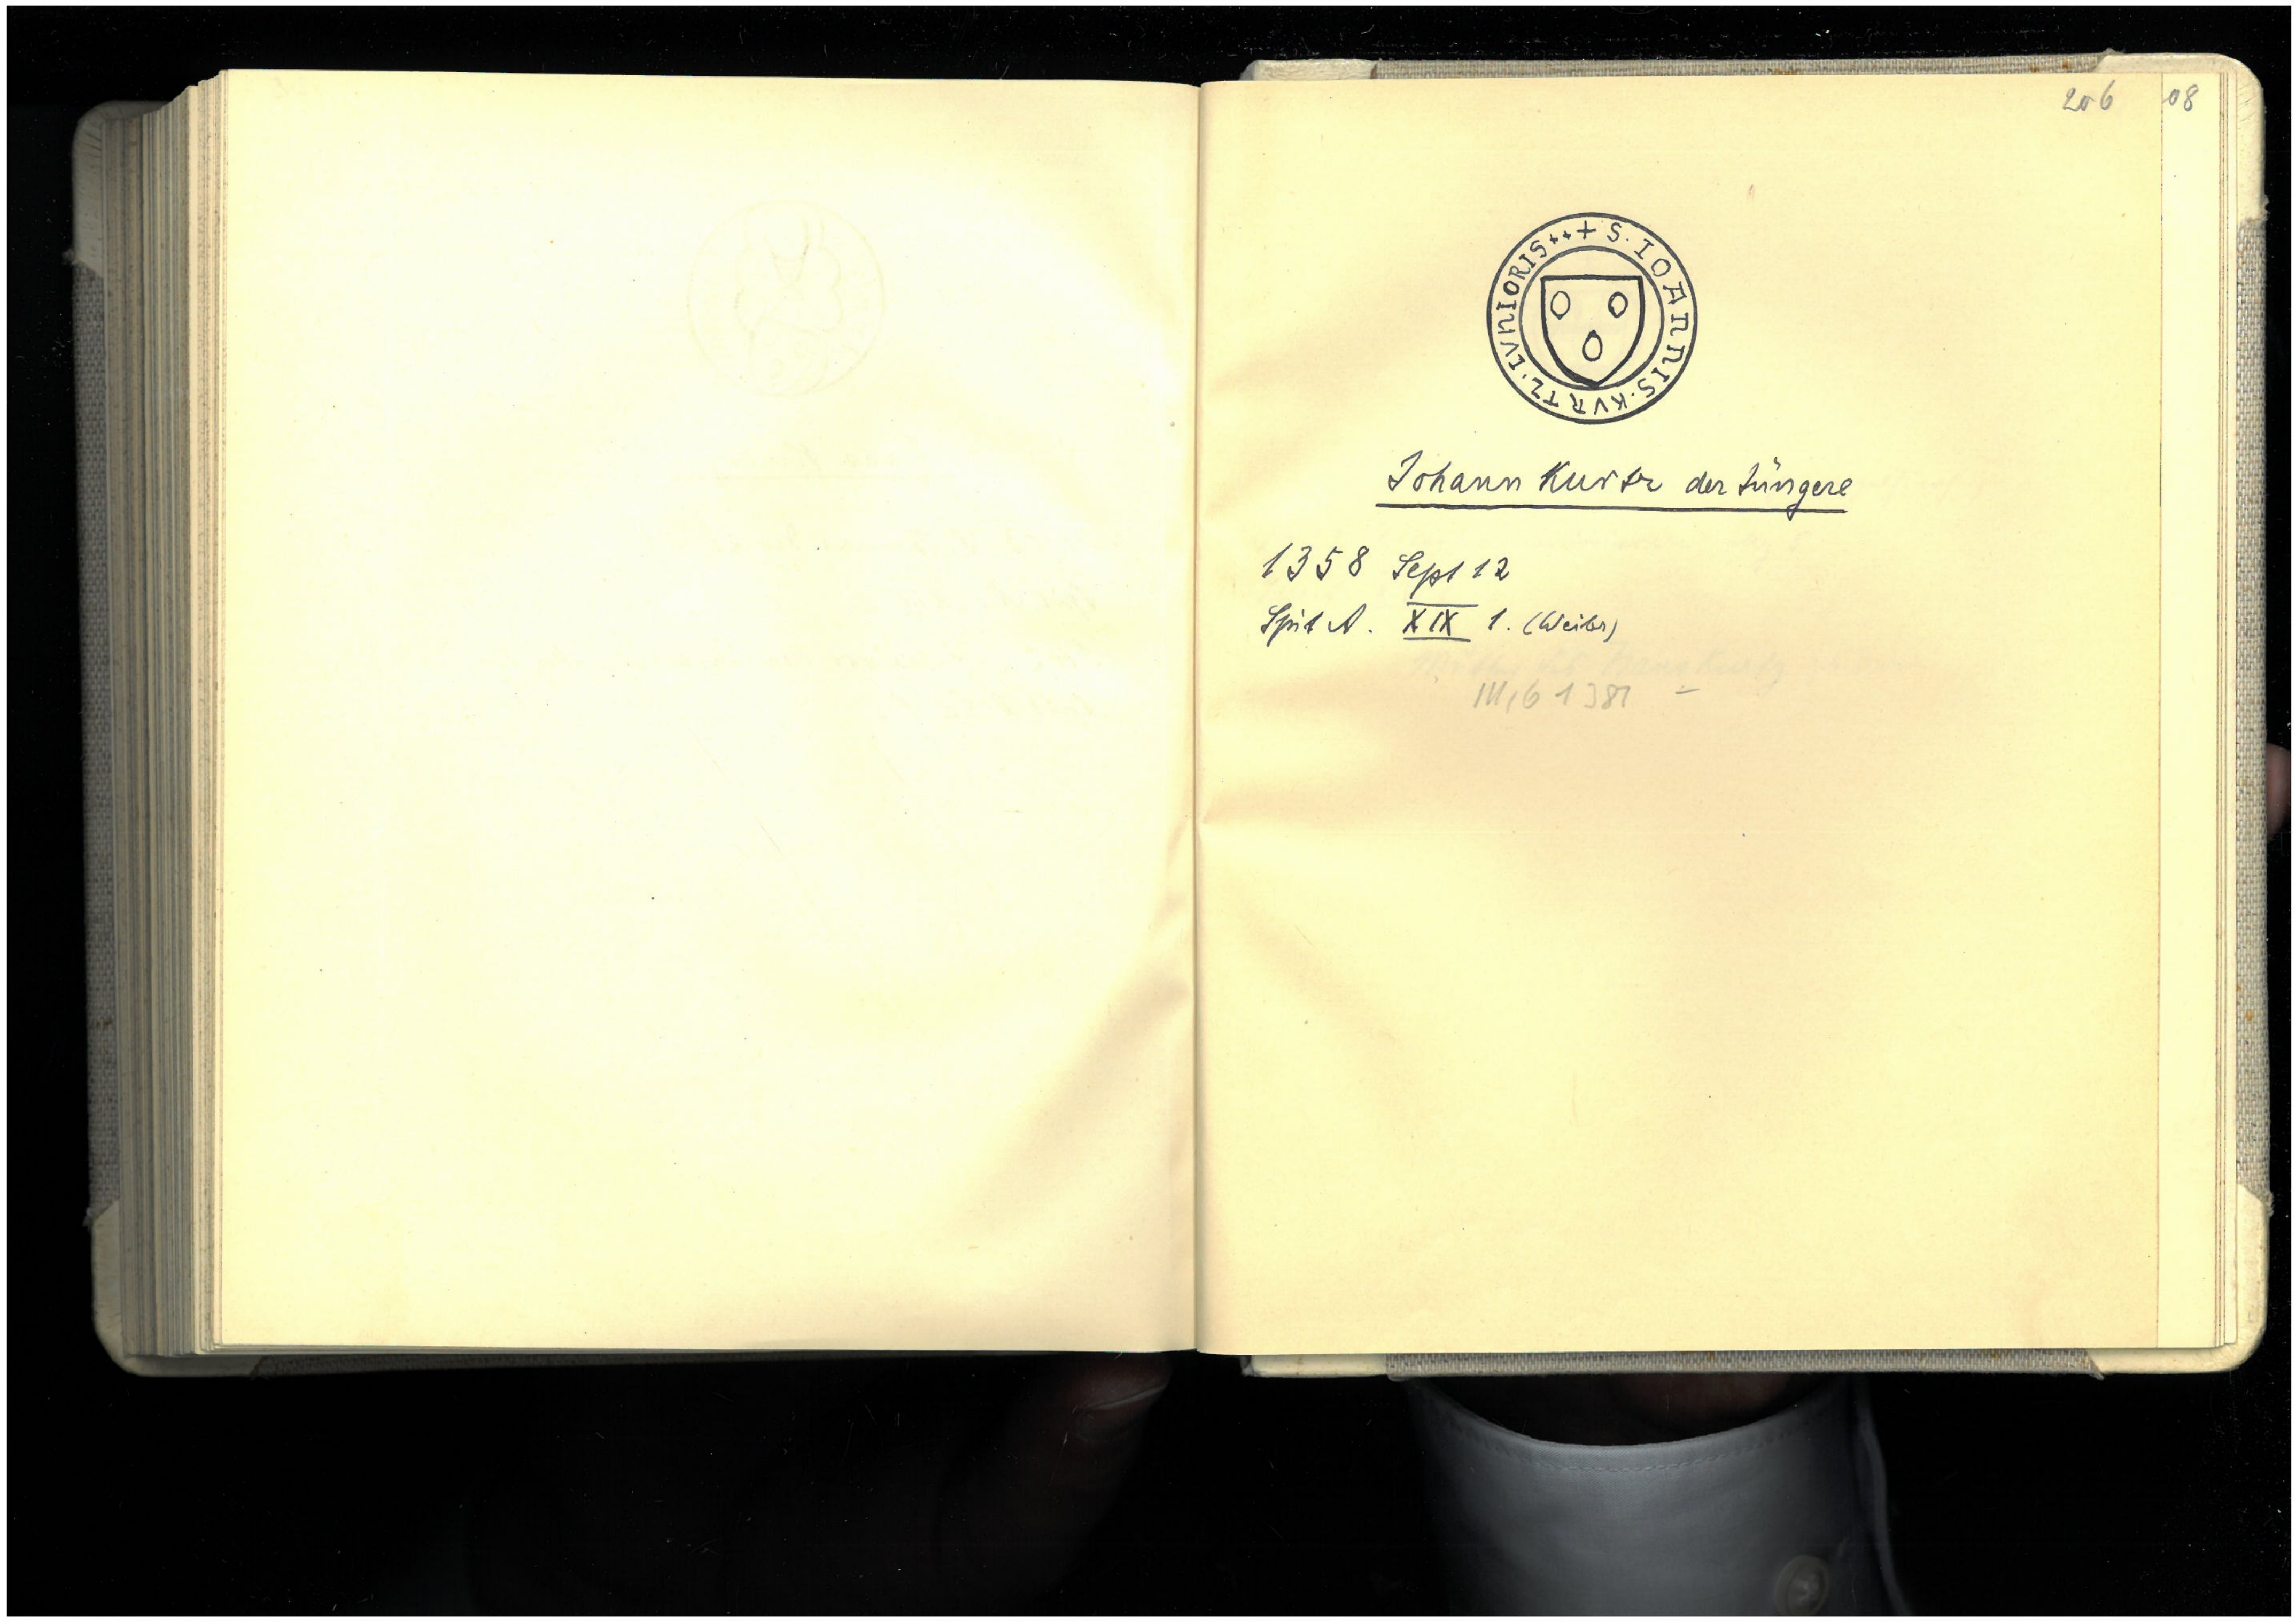 206
08
+ S. IOANNIS. KVRTZ. IVNIORIS ++
Johann Kurtz der Jüngere
1358 Sept 12
Spit A. XIX 1. (Weiler)
III, 6 1381 –